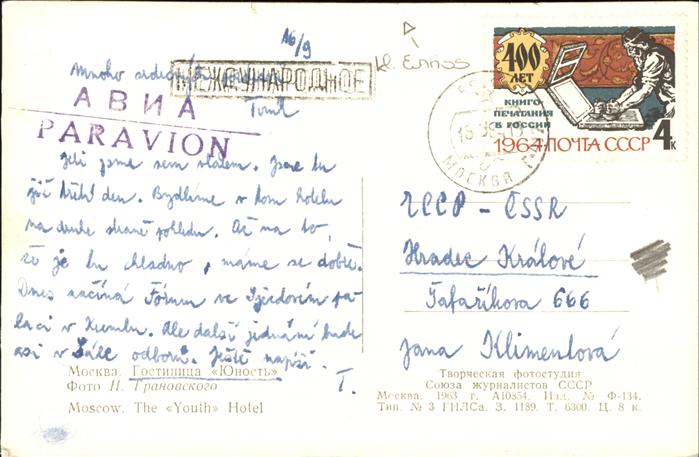 A6/9
kl. Ennos
Mnoho srdečných
МЕЖДУНАРОДНОЕ
Tomk
АВИА
PARAVION
Jeli jsme sem vlakem. Jsme tu
již druhý den. Bydlíme v tom hotelu
na druhé straně pohledu. Až na to,
že je tu chladno, máme se dobře.
Dnes začíná Fórum ve Sjezdovém pa-
láci v Kremlu. Ale další jednání bude
asi v Sále odborů. Ještě napíši.
T.
400
ЛЕТ
КНИГО-
ПЕЧАТАНИЯ
В РОССИИ
1964 ПОЧТА СССР
4к
МОСКВА
ЧССР - ČSSR
Hradec Králové
Šafaříkova 666
Jana Klimentová
Москва. Гостиница «Юность»
Фото Н. Грановского
Moscow. The «Youth» Hotel
Творческая фотостудия
Союза журналистов СССР
Москва. 1963 г. А10854. Изд. № Ф-134.
Тип. № 3 ГИЛСа. З. 1189. Т. 6300. Ц. 8 к.